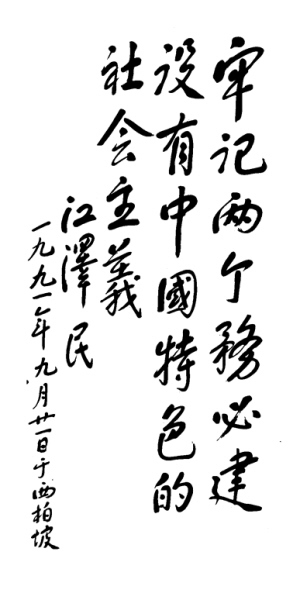 牢记两个務必建
设有中國特色的
社会主義
江澤民
一九九一年九月廿一日于西柏坡